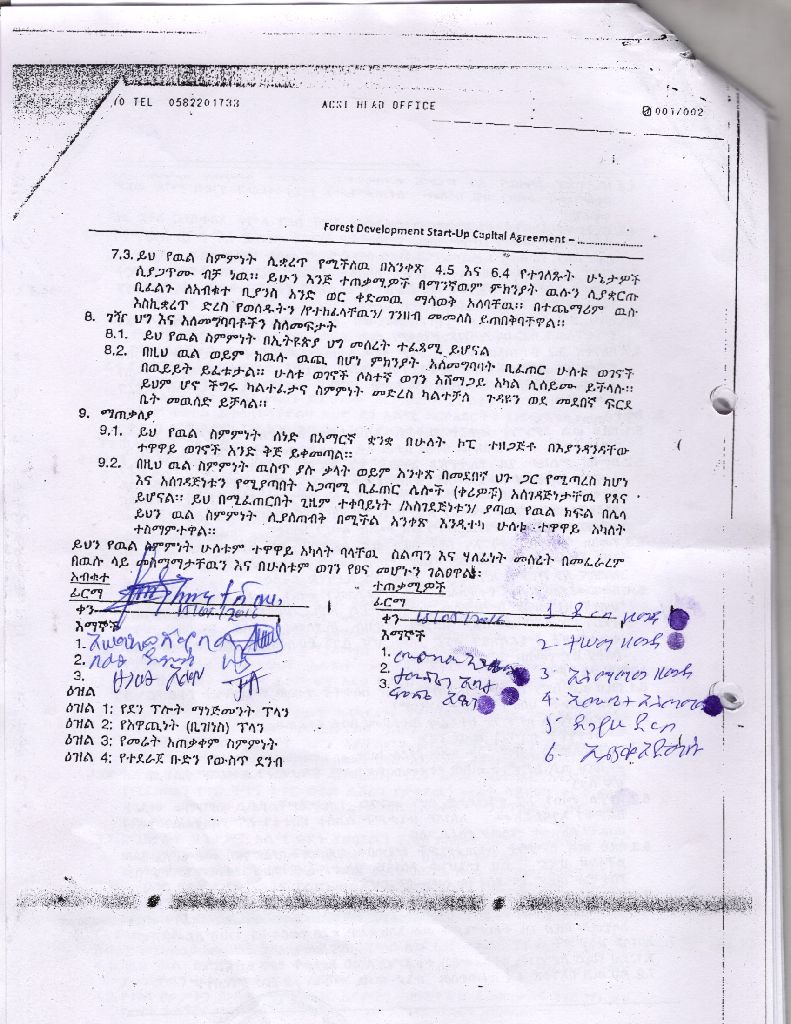 TEL 0582201733 ACSI HEAD OFFICE 001/002
Forest Development Start-Up Capital Agreement – ....................
7.3. ይህ የዉል ስምምነት ሊቋረጥ የሚችለዉ በአንቀጽ 4.5 እና 6.4 የተገለጹት ሁኔታዎች
ሲያጋጥሙ ብቻ ነዉ። ይሁን እንጅ ተጠቃሚዎች በማንኛዉም ምክንያት ዉሉን ሊያቋርጡ
ቢፈልጉ ለአብቁተ ቢያንስ አንድ ወር ቀድመዉ ማሳወቅ አለባቸዉ። በተጨማሪም ዉሉ
እስኪቋረጥ ድረስ የወሰዱትን /የተከፈላቸዉን/ ገንዘብ መመለስ ይጠበቅባቸዋል።
8. ገዥ ህግ እና አለመግባባቶችን ስለመፍታት
8.1. ይህ የዉል ስምምነት በኢትዩጵያ ህግ መሰረት ተፈጻሚ ይሆናል
8.2. በዚህ ዉል ወይም ከዉሉ ዉጪ በሆነ ምክንያት አለመግባባት ቢፈጠር ሁለቱ ወገኖች
በዉይይት ይፈቱታል። ሁለቱ ወገኖች ሶስተኛ ወገን አሸማጋይ አካል ሊሰይሙ ይችላሉ።
ይህም ሆኖ ችግሩ ካልተፈታና ስምምነት መድረስ ካልተቻለ ጉዳዩን ወደ መደበኛ ፍርደ
ቤት መዉሰድ ይቻላል።
9. ማጠቃለያ
9.1. ይህ የዉል ስምምነት ሰነድ በአማርኛ ቋንቋ በሁለት ኮፒ ተዘጋጅቶ በእያንዳንዳቸው
ተዋዋይ ወገኖች አንድ ቅጅ ይቀመጣል።
9.2. በዚህ ዉል ስምምነት ዉስጥ ያሉ ቃላት ወይም አንቀጽ በመደበኛ ህጉ ጋር የሚጣረስ ከሆነ
እና አስገዳጅነቱን የሚያጣበት አጋጣሚ ቢፈጠር ሌሎች (ቀሪዎቹ) አስገዳጅነታቸዉ የጸና
ይሆናል። ይህ በሚፈጠርበት ጊዜም ተቀባይነት /አስገደጅነቱን/ ያጣዉ የዉል ክፍል በሌላ
ይህን ዉል ስምምነት ሊያስጠብቅ በሚችል አንቀጽ እንዲተካ ሁለቱ ተዋዋይ አካላት
ተስማምተዋል።
ይህን የዉል ስምምነት ሁለቱም ተዋዋይ አካላት ባላቸዉ ስልጣን እና ሃላፊነት መሰረት በመፈራረም
በዉሉ ላይ መስማማታቸዉን እና በሁለቱም ወገን የፀና መሆኑን ገልፀዋል።
አብቁተ
ፊርማ
ቀን
እማኞች
1.
2.
3.
ተጠቃሚዎች
ፊርማ
ቀን
እማኞች
1.
2.
3.
1
2
3
4
5
6
ዕዝል
ዕዝል 1: የደን ፕሎት ማነጅመንት ፕላን
ዕዝል 2: የአዋጪነት (ቢዝነስ) ፕላን
ዕዝል 3: የመሬት አጠቃቀም ስምምነት
ዕዝል 4: የተደራጀ ቡድን የውስጥ ደንብ